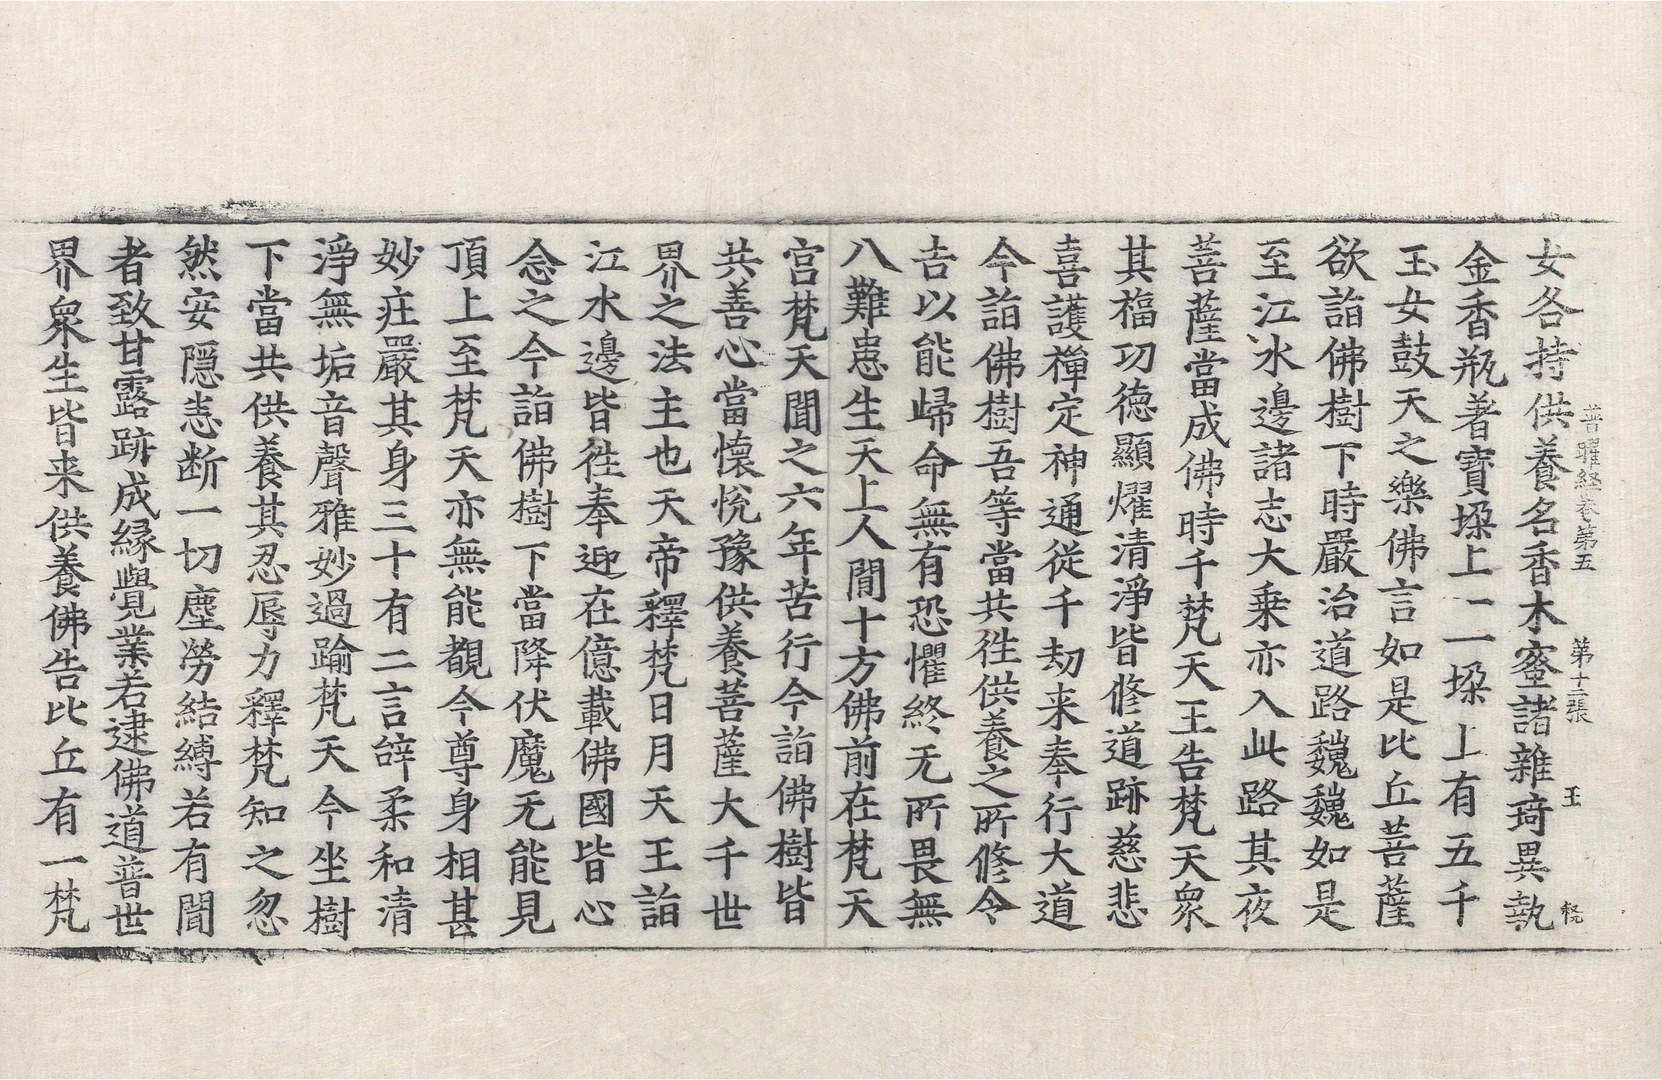 普曜経卷第五　第十二張　王
女各持供養名香木蜜諸雜琦異執
金香瓶著寶垜上二一垜上有五千
玉女鼓天之樂佛言如是比丘菩薩
欲詣佛樹下時嚴治道路巍巍如是
至江水邊諸志大乗亦入此路其夜
菩薩當成佛時千梵天王告梵天衆
其福功德顯燿清淨皆修道跡慈悲
喜護禪定神通從千劫来奉行大道
今詣佛樹吾等當共徃供養之所修今
吉以能歸命無有恐懼終无所畏無
八難患生天上人間十方佛前在梵天
宮梵天聞之六年苦行今詣佛樹皆
共善心當懷悅豫供養菩薩大千世
界之法主也天帝釋梵日月天王詣
江水邊皆徃奉迎在億載佛國皆心
念之今詣佛樹下當降伏魔无能見
頂上至梵天亦無能覩今尊身相甚
妙莊嚴其身三十有二言辝柔和清
淨無垢音聲雅妙過踰梵天今坐樹
下當共供養其忍辱力釋梵知之忽
然安隱恚断一切塵勞結縛若有聞
者致甘露跡成緣覺業若逮佛道普世
界衆生皆来供養佛告比丘有一梵